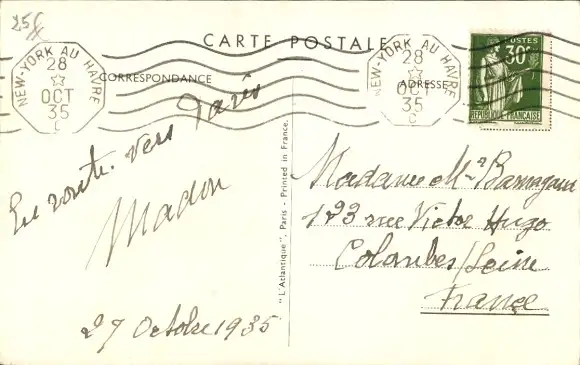 25f
CARTE POSTALE
CORRESPONDANCE
ADRESSE
NEW-YORK AU HAVRE
28
OCT
35
C
NEW-YORK AU HAVRE
28
OCT
35
C
POSTES
30c
REPUBLIQUE FRANCAISE
En route vers Paris
Madon
27 Octobre 1935
"L'Atlantique", Paris - Printed in France.
Madame Mr
123 rue Victor Hugo
Colombes/Seine
France